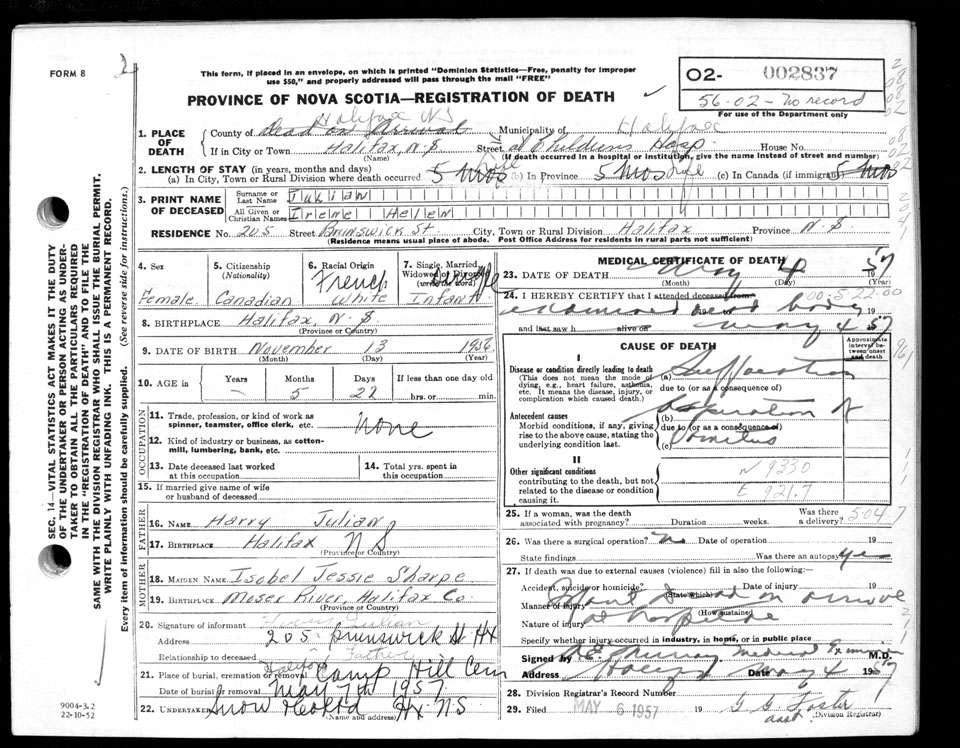 FORM 8
2
This form, if placed in an envelope, on which is printed "Dominion Statistics—Free, penalty for improper
use $50," and properly addressed will pass through the mail "FREE"
PROVINCE OF NOVA SCOTIA—REGISTRATION OF DEATH
02- 002837
56-02-No record
For use of the Department only
Halifax NS
1. PLACE OF DEATH County of Dead on Arrival Municipality of Halifax
If in City or Town Halifax, N.S Street at Childrens Hosp. House No.
(Name) (If death occurred in a hospital or institution, give the name instead of street and number)
2. LENGTH OF STAY (in years, months and days)
(a) In City, Town or Rural Division where death occurred 5 mos Life (b) In Province 5 mos Life (c) In Canada (if immigrant) 5 mos
3. PRINT NAME OF DECEASED Surname or Last Name Julian
All Given or Christian Names Irene Helen
RESIDENCE No. 205 Street Brunswick St. City, Town or Rural Division Halifax Province N.S
(Residence means usual place of abode. Post Office Address for residents in rural parts not sufficient)
4. Sex
Female
5. Citizenship
(Nationality)
Canadian
6. Racial Origin
French
White
7. Single, Married,
Widowed or Divorced
(write the word)
Single
Infant
8. BIRTHPLACE Halifax, N.S
(Province or Country)
9. DATE OF BIRTH November 13 1956
(Month) (Day) (Year)
10. AGE in Years Months Days If less than one day old
— 5 22 hrs. or min.
OCCUPATION
11. Trade, profession, or kind of work as
spinner, teamster, office clerk, etc. None
12. Kind of industry or business, as cotton-
mill, lumbering, bank, etc.
13. Date deceased last worked
at this occupation
14. Total yrs. spent in
this occupation
15. If married give name of wife
or husband of deceased
FATHER
16. NAME Harry Julian
17. BIRTHPLACE Halifax N S
(Province or Country)
MOTHER
18. MAIDEN NAME Isobel Jessie Sharpe
19. BIRTHPLACE Moser River, Halifax Co.
(Province or Country)
20. Signature of informant Julian
Address 205 Brunswick St Hx
Relationship to deceased Father
21. Place of burial, cremation or removal Halifax Camp Hill Cem
Date of burial or removal May 7th 1957
22. UNDERTAKER Snow & Co Ltd Hx N.S.
(Name and address)
9004-3.2
22-10-52
MEDICAL CERTIFICATE OF DEATH
23. DATE OF DEATH May 4 1957
(Month) (Day)
24. I HEREBY CERTIFY that I attended deceased from
examined dead body 19
and last saw h alive on May 4 57
CAUSE OF DEATH
Approximate interval between onset and death
I
Disease or condition directly leading to death
(This does not mean the mode of
dying, e.g., heart failure, asthenia,
etc. It means the disease, injury, or
complication which caused death.)
(a) Suffocation
due to (or as a consequence of)
Antecedent causes
Morbid conditions, if any, giving
rise to the above cause, stating the
underlying condition last.
(b) aspiration of
due to (or as a consequence of)
(c) Vomitus
II
Other significant conditions
contributing to the death, but not
related to the disease or condition
causing it.
N 9330
E 921.7
25. If a woman, was the death
associated with pregnancy? Duration weeks. Was there a delivery? 5047
26. Was there a surgical operation? No Date of operation 19
State findings Was there an autopsy yes
27. If death was due to external causes (violence) fill in also the following:
Accident, suicide or homicide? Date of injury 19
(State which)
Manner of injury found dead on arrival
(How sustained)
Nature of injury at hospital
Specify whether injury occurred in industry, in home, or in public place
Signed by Murray Medical Examiner M.D.
Address Date May 4 1957
28. Division Registrar's Record Number
29. Filed MAY 6 1957 19 G G Foster
asst. (Division Registrar)
SEC. 14—VITAL STATISTICS ACT MAKES IT THE DUTY
OF THE UNDERTAKER OR PERSON ACTING AS UNDER-
TAKER TO OBTAIN ALL THE PARTICULARS REQUIRED
IN THE "REGISTRATION OF DEATH" AND TO FILE THE
SAME WITH THE DIVISION REGISTRAR WHO SHALL ISSUE THE BURIAL PERMIT.
WRITE PLAINLY WITH UNFADING INK. THIS IS A PERMANENT RECORD.
Every item of information should be carefully supplied. (See reverse side for instructions.)